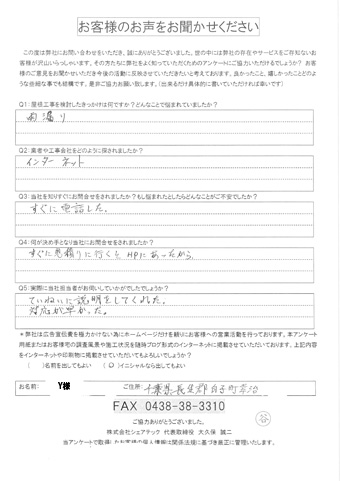 お客様のお声をお聞かせください
この度は弊社にお問い合わせをいただき、誠にありがとうございました。世の中には弊社の存在やサービスをご存知ないお
客様が沢山いらっしゃいます。その方たちに弊社をよく知っていただくためのアンケートにご協力いただけるでしょうか？お客
様のご意見をお聞かせいただき今後の活動に反映させていただきたいと考えております。良かったこと、嬉しかったことどのよ
うな些細な事でも結構です。是非ご協力お願い致します。（出来るだけ具体的に書いていただければ幸いです）
Q1：屋根工事を検討したきっかけは何ですか？どんなことで悩まれていましたか？
雨漏り
Q2：業者や工事会社をどのように探されましたか？
インターネット
Q3：当社を知りすぐにお問合せをされましたか？もし悩まれたとしたらどんなことがご不安でしたか？
すぐに電話した。
Q4：何が決め手となり当社にお問合せをされましたか？
すぐに見積りに行くとHPにあったから
Q5：実際に当社担当者がお伺いしていかがでしたでしょうか？
ていねいに説明をしてくれた。
対応が早かった。
＊弊社は広告宣伝費を極力かけない為にホームページだけを頼りにお客様への営業活動を行っております。本アンケート
用紙またはお客様宅の調査風景や施工状況を随時ブログ形式のインターネットに掲載させていただいております。上記内容
をインターネットや印刷物に掲載させていただいてもよろしいでしょうか？
（　）名前を出してもよい　（○）イニシャルなら出してもよい
お名前：　Y様　ご住所：千葉県長生郡白子町幸治
FAX 0438-38-3310
ご協力ありがとうございました。
株式会社シェアテック 代表取締役 大久保 誠二
当アンケートで取得したお客様の個人情報は関係法規に基づき厳正に管理いたします。